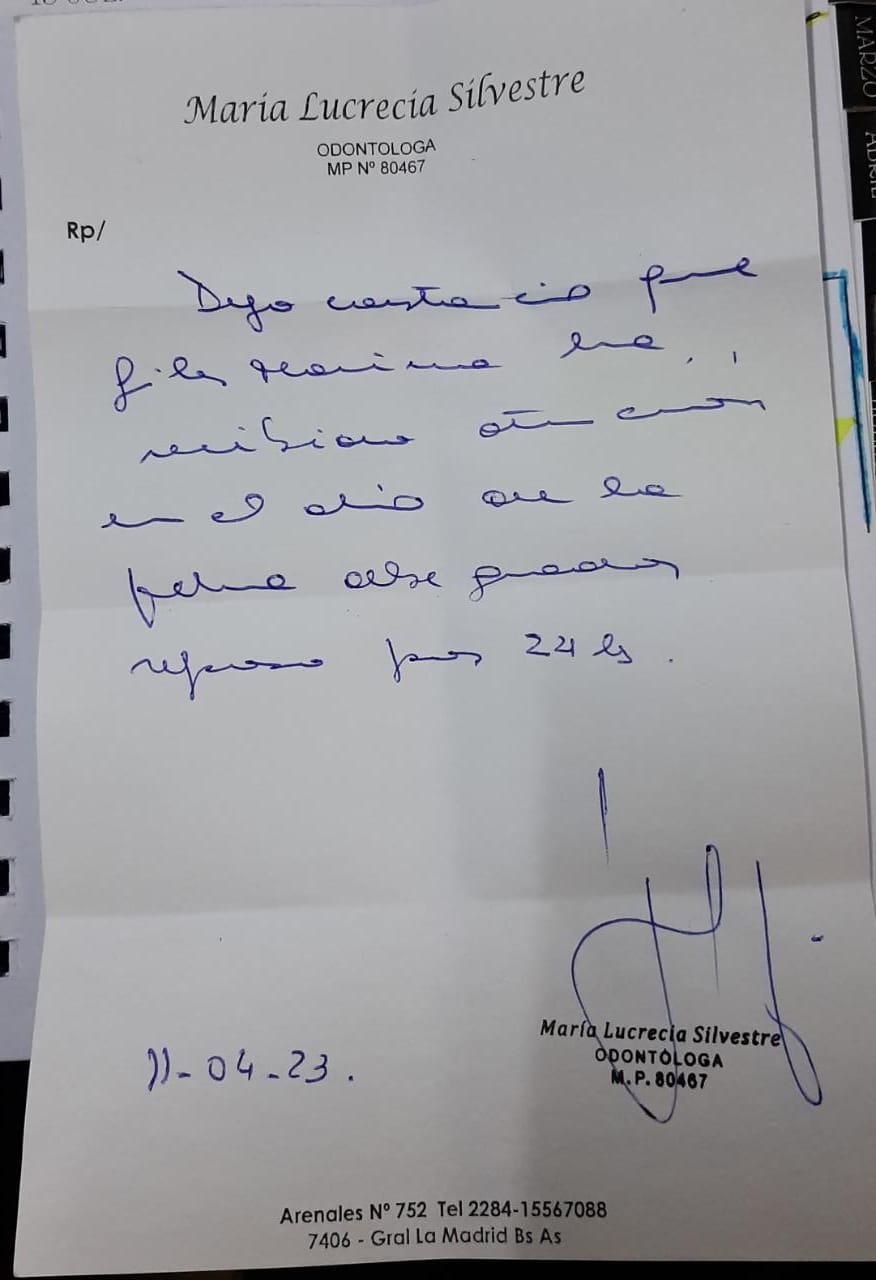 María Lucrecia Silvestre
ODONTOLOGA
MP Nº 80467
Rp/
Dejo constancia que
ha
recibido atención
en el día de la
fecha debe guardar
reposo por 24 hs.
11-04-23.
María Lucrecia Silvestre
ODONTÓLOGA
M.P. 80467
Arenales Nº 752 Tel 2284-15567088
7406 - Gral La Madrid Bs As
MARZO
ABRIL